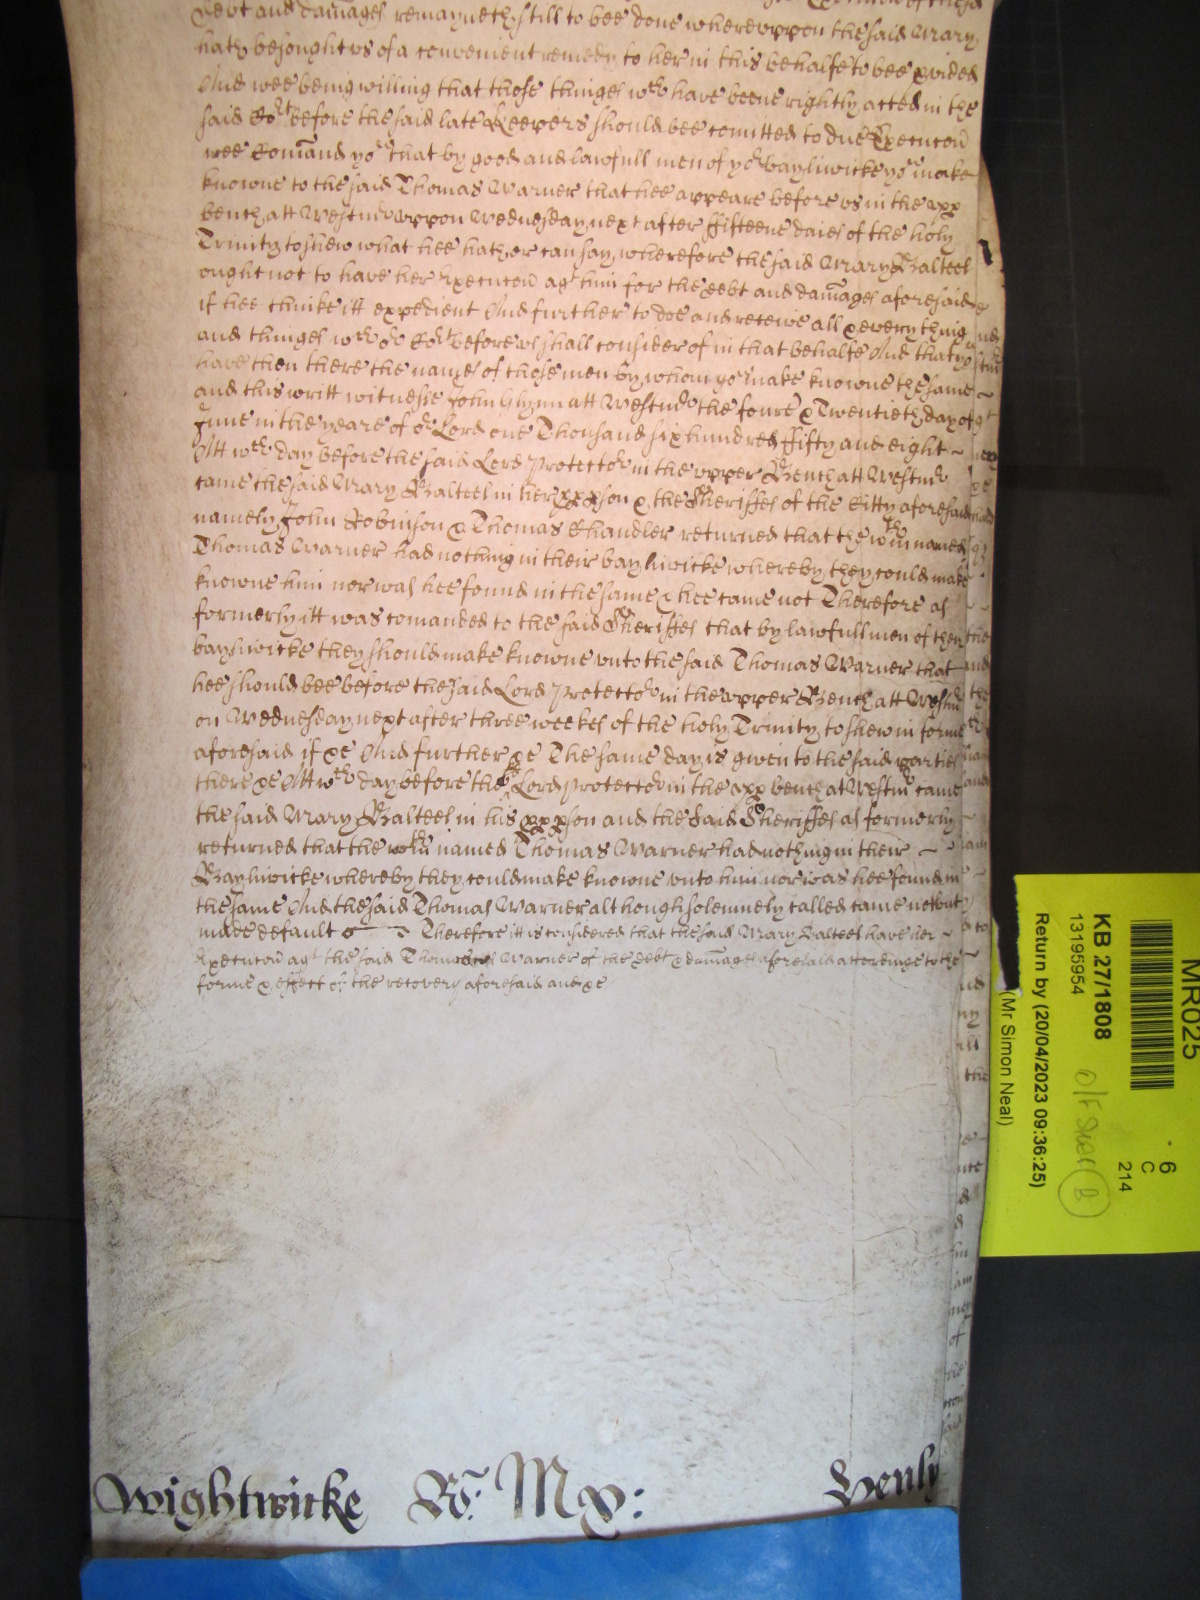 debt and damages remayneth still to bee done whereuppon the said Mary
hath besought us of a convenient remedy to her in this behalfe to bee pvided
And wee being willing that those thinges wch have beene rightly acted in the
said Cort before the said late Keepers should bee comitted to due Execucon
wee Comand yow that by good and lawfull men of yor bayliwicke yow make
knowne to the said Thomas Warner that hee appeare before us in the upp
bench att Westmr uppon Wednesday next after fifteene daies of the holy
Trinity to shew what hee hath or can say wherefore the said Mary Balteel
ought not to have her Execucon agt him for the debt and damages aforesaid
if hee thinke itt expedient And further to doe and receive all & every thing
and thinges wch or Cort before us shall consider of in that behalfe And that yow
have then there the names of those men by whom yow make knowne the same
and this writt witnesse John Glynn att Westmr the foure & Twentieth day of
June in the yeare of or Lord one Thousand six hundred fifty and eight
Att wch day before the said Lord Protector in the upper Bench att Westmr
came the said Mary Balteel in her ppp son & the Sheriffes of the Citty aforesaid
namely John Robinson & Thomas Chandler returned that the wthin named
Thomas Warner had nothing in their bayliwicke whereby they could make
knowne him nor was hee found in the same & hee came not Therefore as
formerly itt was comanded to the said Sheriffes that by lawfull men of their
bayliwicke they should make knowne unto the said Thomas Warner that
hee should bee before the said Lord Protector in the upper Bench att Westmr
on Wednesday next after three weekes of the holy Trinity to shew in forme
aforesaid if &c And further &c The same day is given to the said parties
there &c Att wch day before the sd Lord Protector in the upp bench at Westmr came
the said Mary Balteel in his ppp son and the said Sheriffes as formerly
returned that the wthin named Thomas Warner had nothing in their
Bayliwicke whereby they could make knowne unto him nor was hee found in
the same And the said Thomas Warner although solemnely called came not but
made default Therefore itt is considered that the said Mary Balteel have her
Execucon agt the said Thomas Warner of the debt & damages aforesaid accordinge to the
forme & effect of the recovery aforesaid and &c
Wightwicke Rx: Mx:
Henly
MR025
KB 27/1808
13195954
Return by (20/04/2023 09:36:25)
(Mr Simon Neal)
6
C
214
B